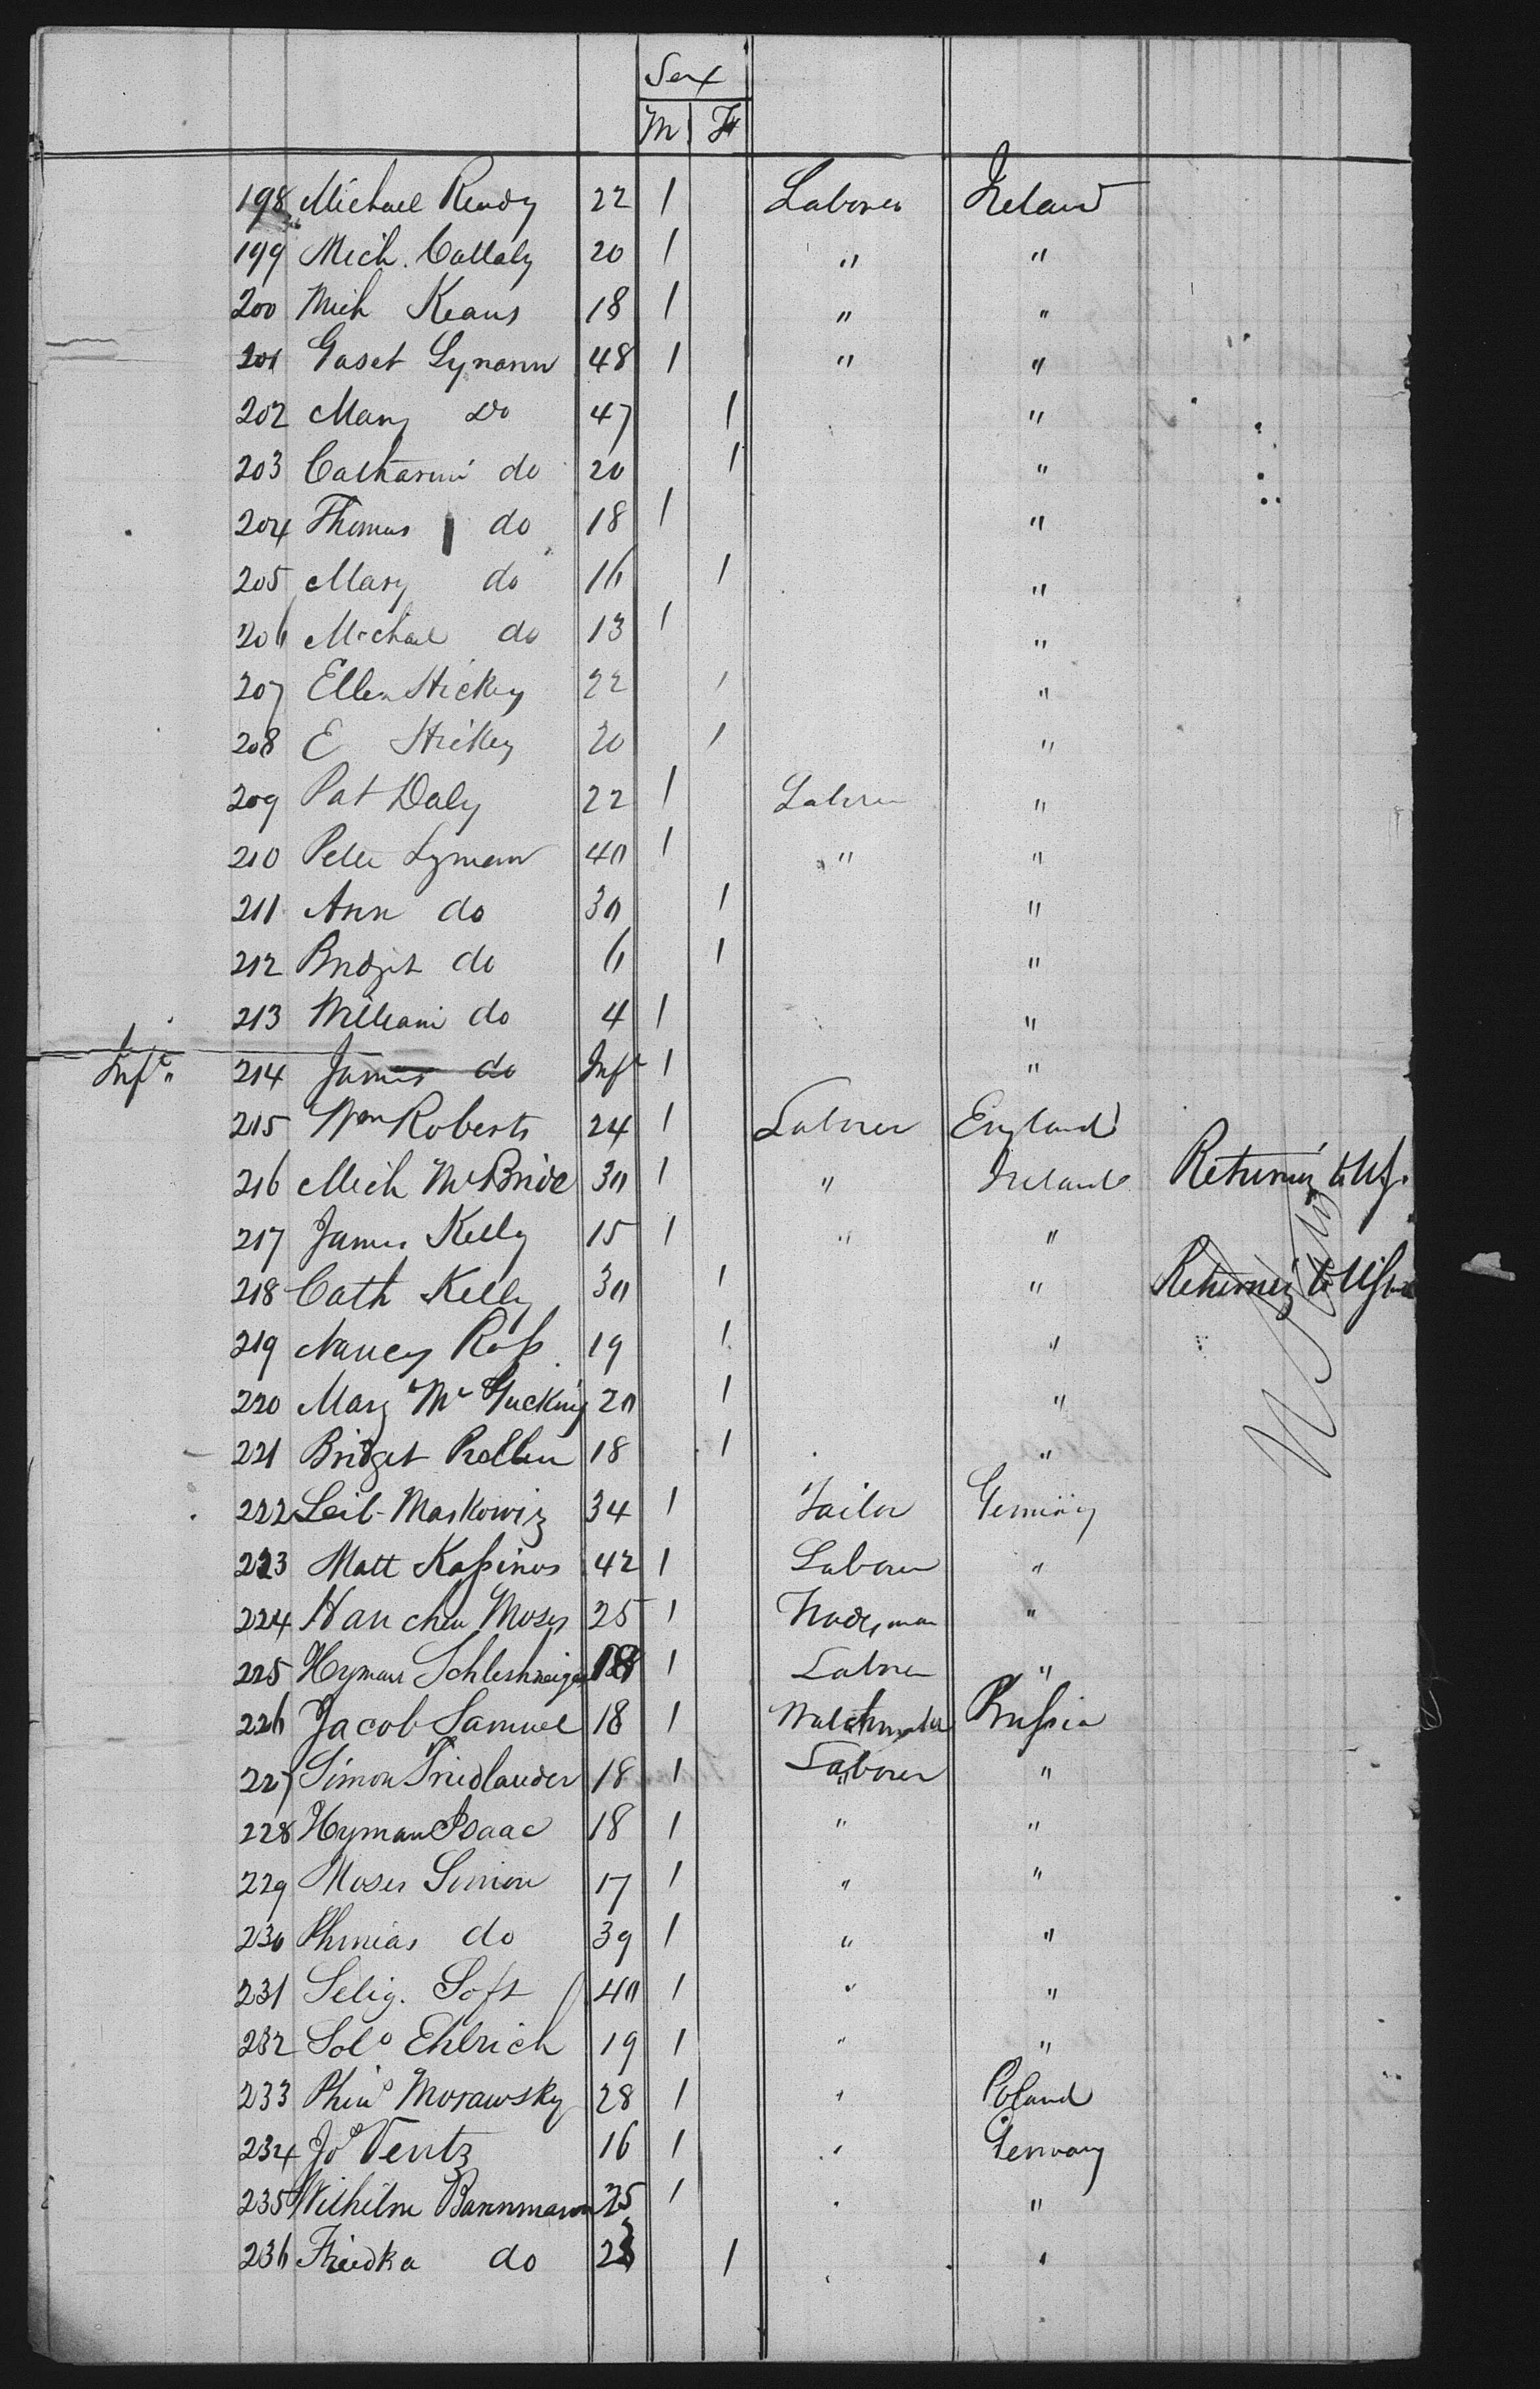 Sex
M F
198 Michael Ready 22 1 Laborer Ireland
199 Mich. Callaly 20 1 " "
200 Mich Keans 18 1 " "
201 Gaset Lynann 48 1 " "
202 Mary Do 47 1 "
203 Catharine do 20 1 "
204 Thomas do 18 1 "
205 Mary do 16 1 "
206 Michael do 13 1 "
207 Ellen Hickey 22 1 "
208 E Hickey 20 1 "
209 Pat Daly 22 1 Laborer "
210 Peter Lyman 40 1 " "
211 Ann do 30 1 "
212 Bridget do 6 1 "
213 William do 4 1 "
Inft " 214 James do Inft 1 "
215 Wm Roberts 24 1 Laborer England
216 Mich McBride 30 1 " Ireland Returning to US.
217 James Kelly 15 1 " "
218 Cath Kelly 30 1 " Returning to US
219 Nancy Roß 19 1 "
220 Mary Mc 20 1 "
221 Bridget 18 1 "
222 Leib Maskowiz 34 1 Tailor Germany
223 Matt Kaßinos 42 1 Laborer "
224 Hanchen Moses 25 1 Tradesman "
225 Hyman 18 1 Laborer "
226 Jacob Samuel 18 1 Watchmaker Prußia
227 Simon Friedlander 18 1 Laborer "
228 Hyman Isaac 18 1 " "
229 Moses Simon 17 1 " "
230 Phineas do 39 1 " "
231 Selig. Soft 40 1 " "
232 Solo Ehlrich 19 1 " "
233 Phins Morawsky 28 1 " Poland
234 Jos Ventz 16 1 " Germany
235 Wilhilm Bannmann 25 1 " "
236 Friedka do 23 1 "